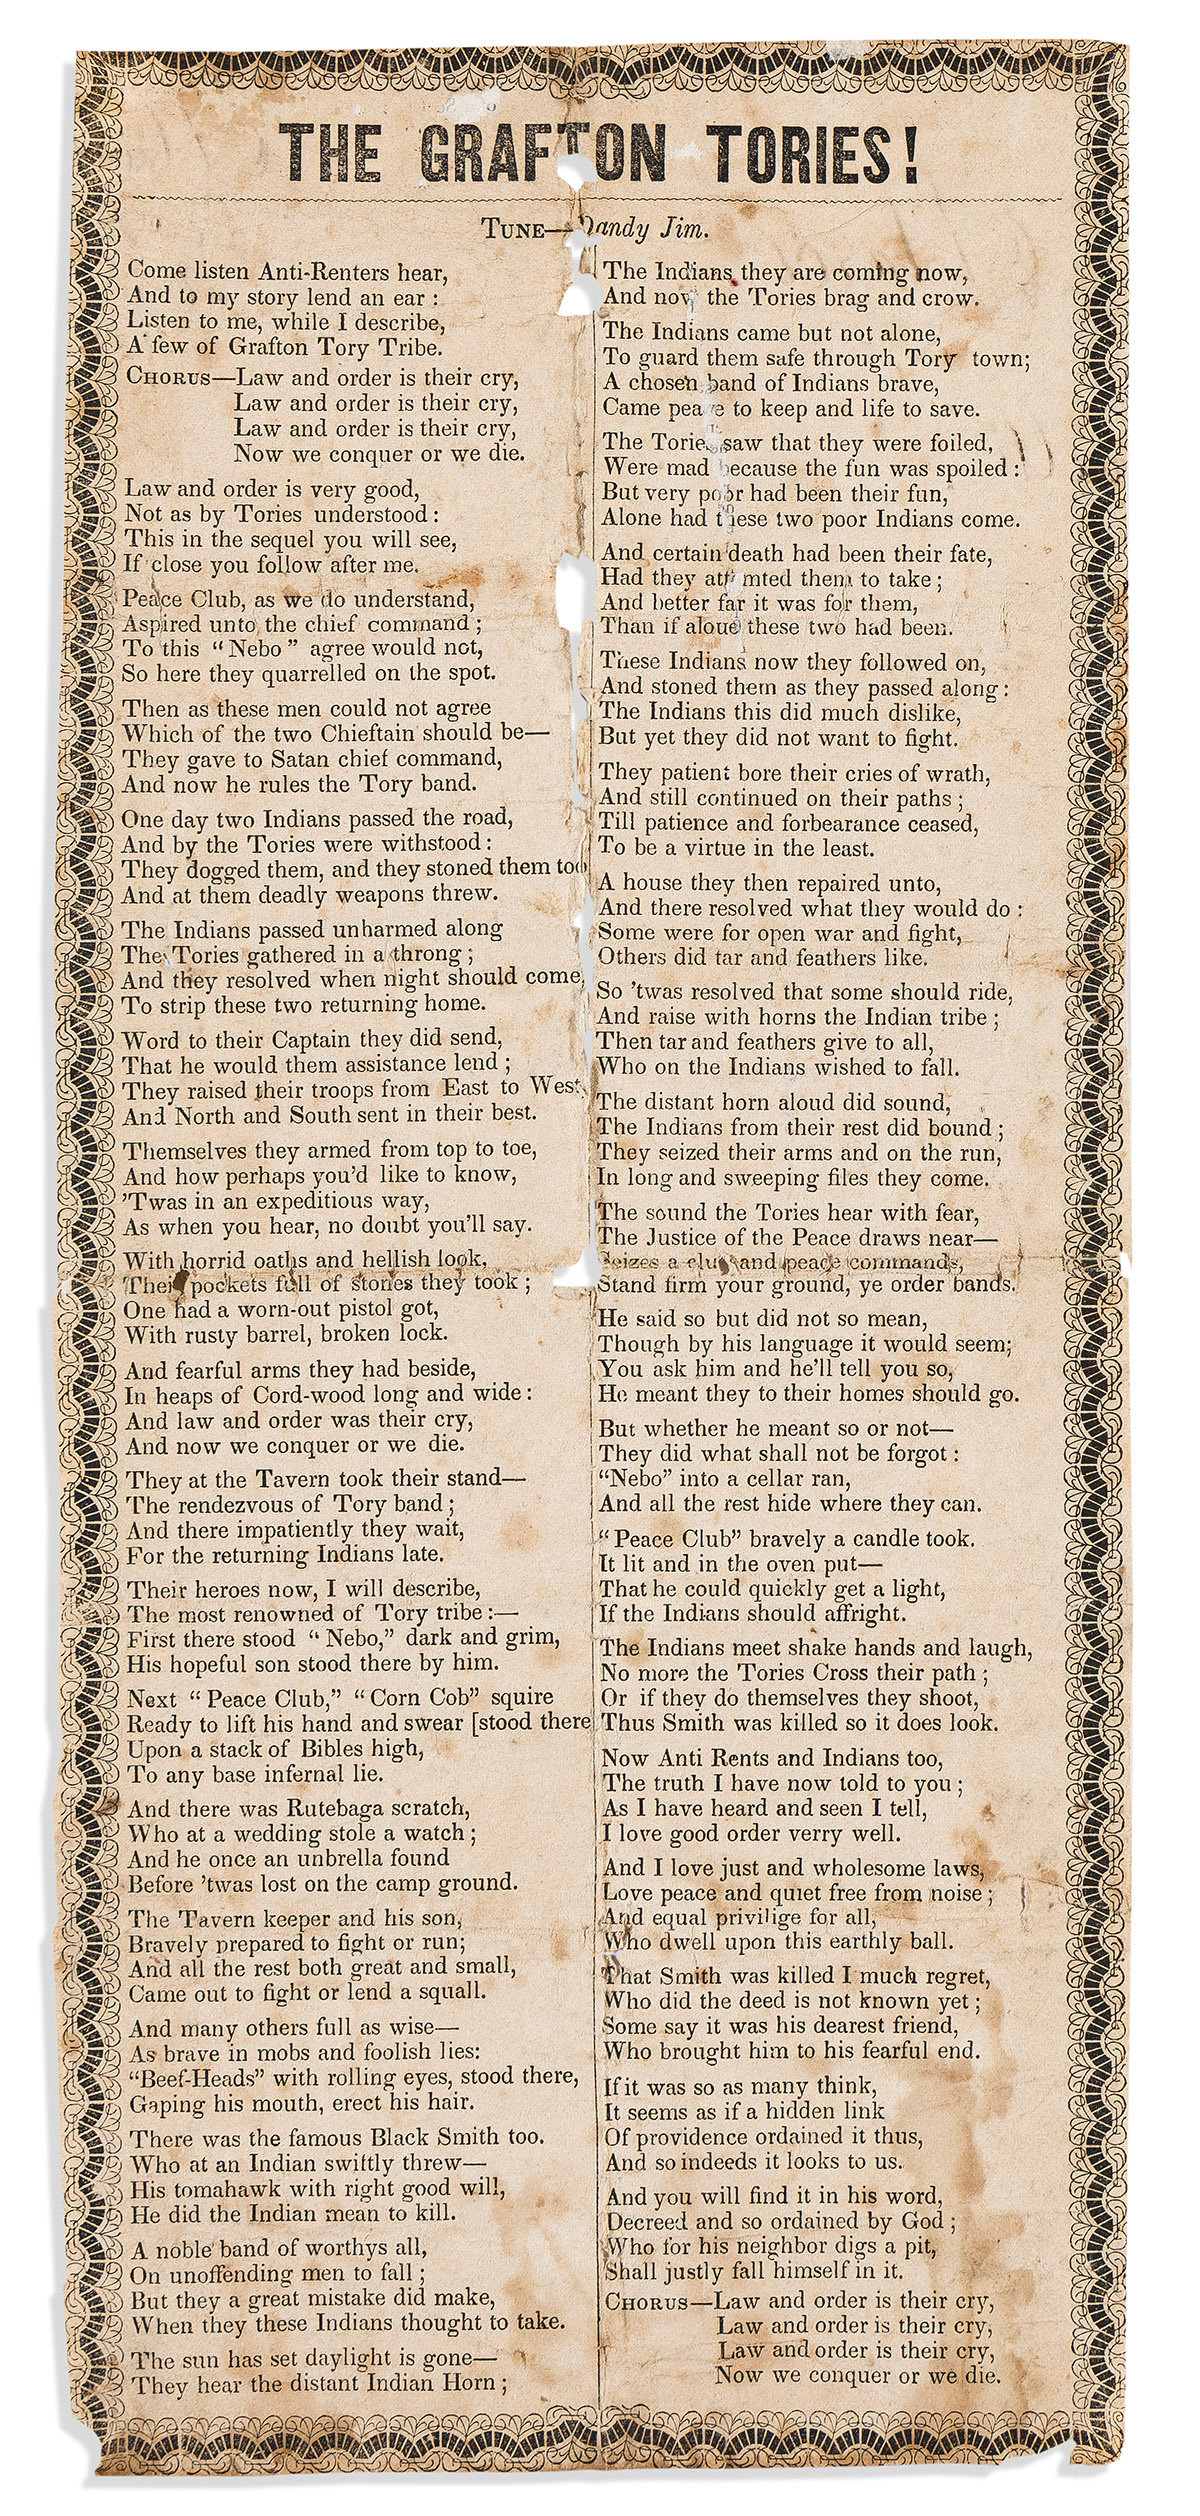 THE GRAFTON TORIES!
TUNE—Dandy Jim.
Come listen Anti-Renters hear,
And to my story lend an ear :
Listen to me, while I describe,
A few of Grafton Tory Tribe.
CHORUS—Law and order is their cry,
Law and order is their cry,
Law and order is their cry,
Now we conquer or we die.
Law and order is very good,
Not as by Tories understood :
This in the sequel you will see,
If close you follow after me.
Peace Club, as we do understand,
Aspired unto the chief command ;
To this “ Nebo ” agree would not,
So here they quarrelled on the spot.
Then as these men could not agree
Which of the two Chieftain should be—
They gave to Satan chief command,
And now he rules the Tory band.
One day two Indians passed the road,
And by the Tories were withstood :
They dogged them, and they stoned them too
And at them deadly weapons threw.
The Indians passed unharmed along
The Tories gathered in a throng ;
And they resolved when night should come,
To strip these two returning home.
Word to their Captain they did send,
That he would them assistance lend ;
They raised their troops from East to West,
And North and South sent in their best.
Themselves they armed from top to toe,
And how perhaps you’d like to know,
’Twas in an expeditious way,
As when you hear, no doubt you’ll say.
With horrid oaths and hellish look,
Their pockets full of stones they took ;
One had a worn-out pistol got,
With rusty barrel, broken lock.
And fearful arms they had beside,
In heaps of Cord-wood long and wide :
And law and order was their cry,
And now we conquer or we die.
They at the Tavern took their stand—
The rendezvous of Tory band ;
And there impatiently they wait,
For the returning Indians late.
Their heroes now, I will describe,
The most renowned of Tory tribe :—
First there stood “ Nebo,” dark and grim,
His hopeful son stood there by him.
Next “ Peace Club,” “ Corn Cob” squire
Ready to lift his hand and swear [stood there
Upon a stack of Bibles high,
To any base infernal lie.
And there was Rutebaga scratch,
Who at a wedding stole a watch ;
And he once an unbrella found
Before ’twas lost on the camp ground.
The Tavern keeper and his son,
Bravely prepared to fight or run;
And all the rest both great and small,
Came out to fight or lend a squall.
And many others full as wise—
As brave in mobs and foolish lies:
“Beef-Heads” with rolling eyes, stood there,
Gaping his mouth, erect his hair.
There was the famous Black Smith too.
Who at an Indian swiftly threw—
His tomahawk with right good will,
He did the Indian mean to kill.
A noble band of worthys all,
On unoffending men to fall ;
But they a great mistake did make,
When they these Indians thought to take.
The sun has set daylight is gone—
They hear the distant Indian Horn ;
The Indians they are coming now,
And now the Tories brag and crow.
The Indians came but not alone,
To guard them safe through Tory town;
A chosen band of Indians brave,
Came peace to keep and life to save.
The Tories saw that they were foiled,
Were mad because the fun was spoiled :
But very poor had been their fun,
Alone had these two poor Indians come.
And certain death had been their fate,
Had they attempted them to take ;
And better far it was for them,
Than if alone these two had been.
These Indians now they followed on,
And stoned them as they passed along :
The Indians this did much dislike,
But yet they did not want to fight.
They patient bore their cries of wrath,
And still continued on their paths ;
Till patience and forbearance ceased,
To be a virtue in the least.
A house they then repaired unto,
And there resolved what they would do :
Some were for open war and fight,
Others did tar and feathers like.
So ’twas resolved that some should ride,
And raise with horns the Indian tribe ;
Then tar and feathers give to all,
Who on the Indians wished to fall.
The distant horn aloud did sound,
The Indians from their rest did bound ;
They seized their arms and on the run,
In long and sweeping files they come.
The sound the Tories hear with fear,
The Justice of the Peace draws near—
Seizes a club and peace commands,
Stand firm your ground, ye order bands.
He said so but did not so mean,
Though by his language it would seem;
You ask him and he’ll tell you so,
He meant they to their homes should go.
But whether he meant so or not—
They did what shall not be forgot :
“Nebo” into a cellar ran,
And all the rest hide where they can.
“ Peace Club” bravely a candle took.
It lit and in the oven put—
That he could quickly get a light,
If the Indians should affright.
The Indians meet shake hands and laugh,
No more the Tories Cross their path ;
Or if they do themselves they shoot,
Thus Smith was killed so it does look.
Now Anti Rents and Indians too,
The truth I have now told to you ;
As I have heard and seen I tell,
I love good order verry well.
And I love just and wholesome laws,
Love peace and quiet free from noise ;
And equal privilige for all,
Who dwell upon this earthly ball.
That Smith was killed I much regret,
Who did the deed is not known yet ;
Some say it was his dearest friend,
Who brought him to his fearful end.
If it was so as many think,
It seems as if a hidden link
Of providence ordained it thus,
And so indeeds it looks to us.
And you will find it in his word,
Decreed and so ordained by God ;
Who for his neighbor digs a pit,
Shall justly fall himself in it.
CHORUS—Law and order is their cry,
Law and order is their cry,
Law and order is their cry,
Now we conquer or we die.